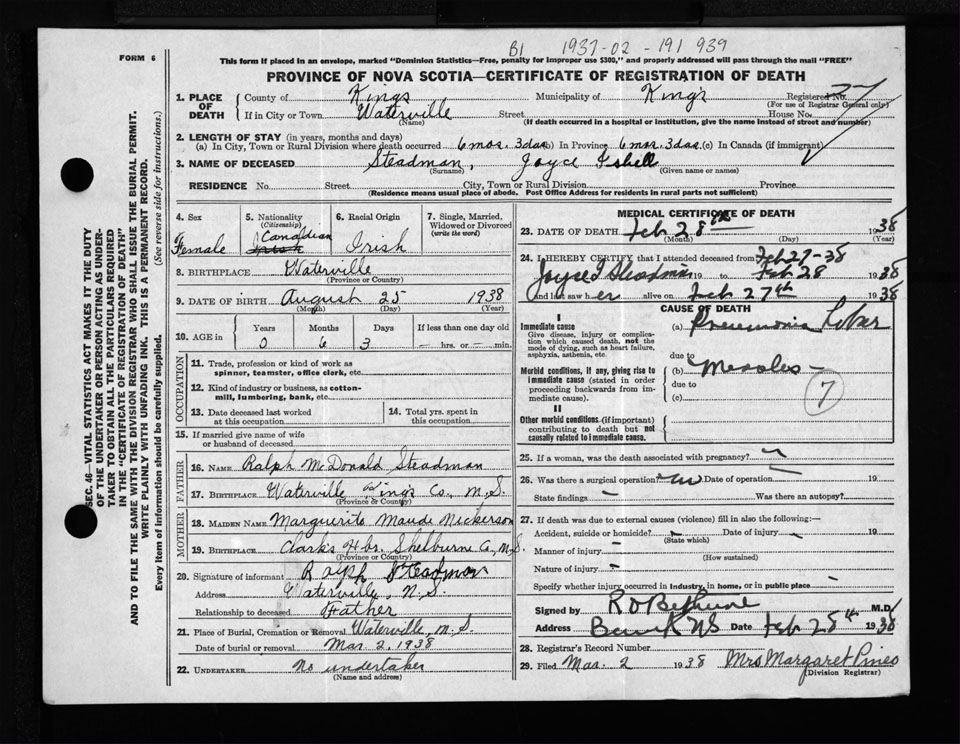 B1 1937-02-191 939
FORM 6
This form if placed in an envelope, marked "Dominion Statistics—Free, penalty for improper use $300," and properly addressed will pass through the mail "FREE"
PROVINCE OF NOVA SCOTIA—CERTIFICATE OF REGISTRATION OF DEATH
1. PLACE OF DEATH County of Kings Municipality of King's Registered No.
(For use of Registrar General only)
If in City or Town Waterville Street House No.
(Name) (If death occurred in a hospital or institution, give the name instead of street and number)
2. LENGTH OF STAY (in years, months and days)
(a) In City, Town or Rural Division where death occurred 6 mos. 3 das (b) In Province 6 mos. 3 das. (c) In Canada (if immigrant)
3. NAME OF DECEASED Steadman, Joyce Isbell
(Surname) (Given name or names)
RESIDENCE No. Street City, Town or Rural Division Province
(Residence means usual place of abode. Post Office Address for residents in rural parts not sufficient)
4. Sex Female
5. Nationality (Citizenship) Canadian Irish
6. Racial Origin Irish
7. Single, Married, Widowed or Divorced (write the word)
8. BIRTHPLACE Waterville
(Province or Country)
9. DATE OF BIRTH August 25 1938
(Month) (Day) (Year)
10. AGE in Years Months Days If less than one day old
0 6 3 — hrs. or — min.
OCCUPATION
11. Trade, profession or kind of work as spinner, teamster, office clerk, etc.
12. Kind of industry or business, as cotton-mill, lumbering, bank, etc.
13. Date deceased last worked at this occupation
14. Total yrs. spent in this occupation
15. If married give name of wife or husband of deceased
FATHER
16. NAME Ralph McDonald Steadman
17. BIRTHPLACE Waterville King's Co., N.S.
(Province or Country)
MOTHER
18. MAIDEN NAME Marguerite Maude Nickerson
19. BIRTHPLACE Clark's Hbr. Shelburne Co., N.S.
(Province or Country)
20. Signature of informant Ralph Steadman
Address Waterville, N.S.
Relationship to deceased Father
21. Place of Burial, Cremation or Removal Waterville, N.S.
Date of burial or removal Mar. 2, 1938
22. UNDERTAKER No undertaker
(Name and address)
MEDICAL CERTIFICATE OF DEATH
23. DATE OF DEATH Feb 28th 1938
(Month) (Day) (Year)
24. I HEREBY CERTIFY that I attended deceased from Feb 27-38
Joyce I Steadman 19 to Feb 28 1938
and last saw her alive on Feb 27th 1938
CAUSE OF DEATH
I
Immediate cause
Give disease, injury or complication which caused death, not the mode of dying, such as heart failure, asphyxia, asthenia, etc.
(a) Pneumonia Lobar
due to
Morbid conditions, if any, giving rise to immediate cause (stated in order proceeding backwards from immediate cause).
(b) Measles
due to
(c)
7
II
Other morbid conditions (if important) contributing to death but not causally related to immediate cause.
25. If a woman, was the death associated with pregnancy?
26. Was there a surgical operation? Date of operation 19
State findings Was there an autopsy?
27. If death was due to external causes (violence) fill in also the following:—
Accident, suicide or homicide? Date of injury 19
(State which)
Manner of injury
(How sustained)
Nature of injury
Specify whether injury occurred in industry, in home, or in public place
Signed by R D Bethune M.D.
Address NS Date Feb 28th 1938
28. Registrar's Record Number
29. Filed Mar. 2 1938 Mrs Margaret Pineo
(Division Registrar)
SEC. 46—VITAL STATISTICS ACT MAKES IT THE DUTY
OF THE UNDERTAKER OR PERSON ACTING AS UNDER-
TAKER TO OBTAIN ALL THE PARTICULARS REQUIRED
IN THE "CERTIFICATE OF REGISTRATION OF DEATH"
AND TO FILE THE SAME WITH THE DIVISION REGISTRAR WHO SHALL ISSUE THE BURIAL PERMIT.
WRITE PLAINLY WITH UNFADING INK. THIS IS A PERMANENT RECORD.
Every item of Information should be carefully supplied. (See reverse side for instructions.)